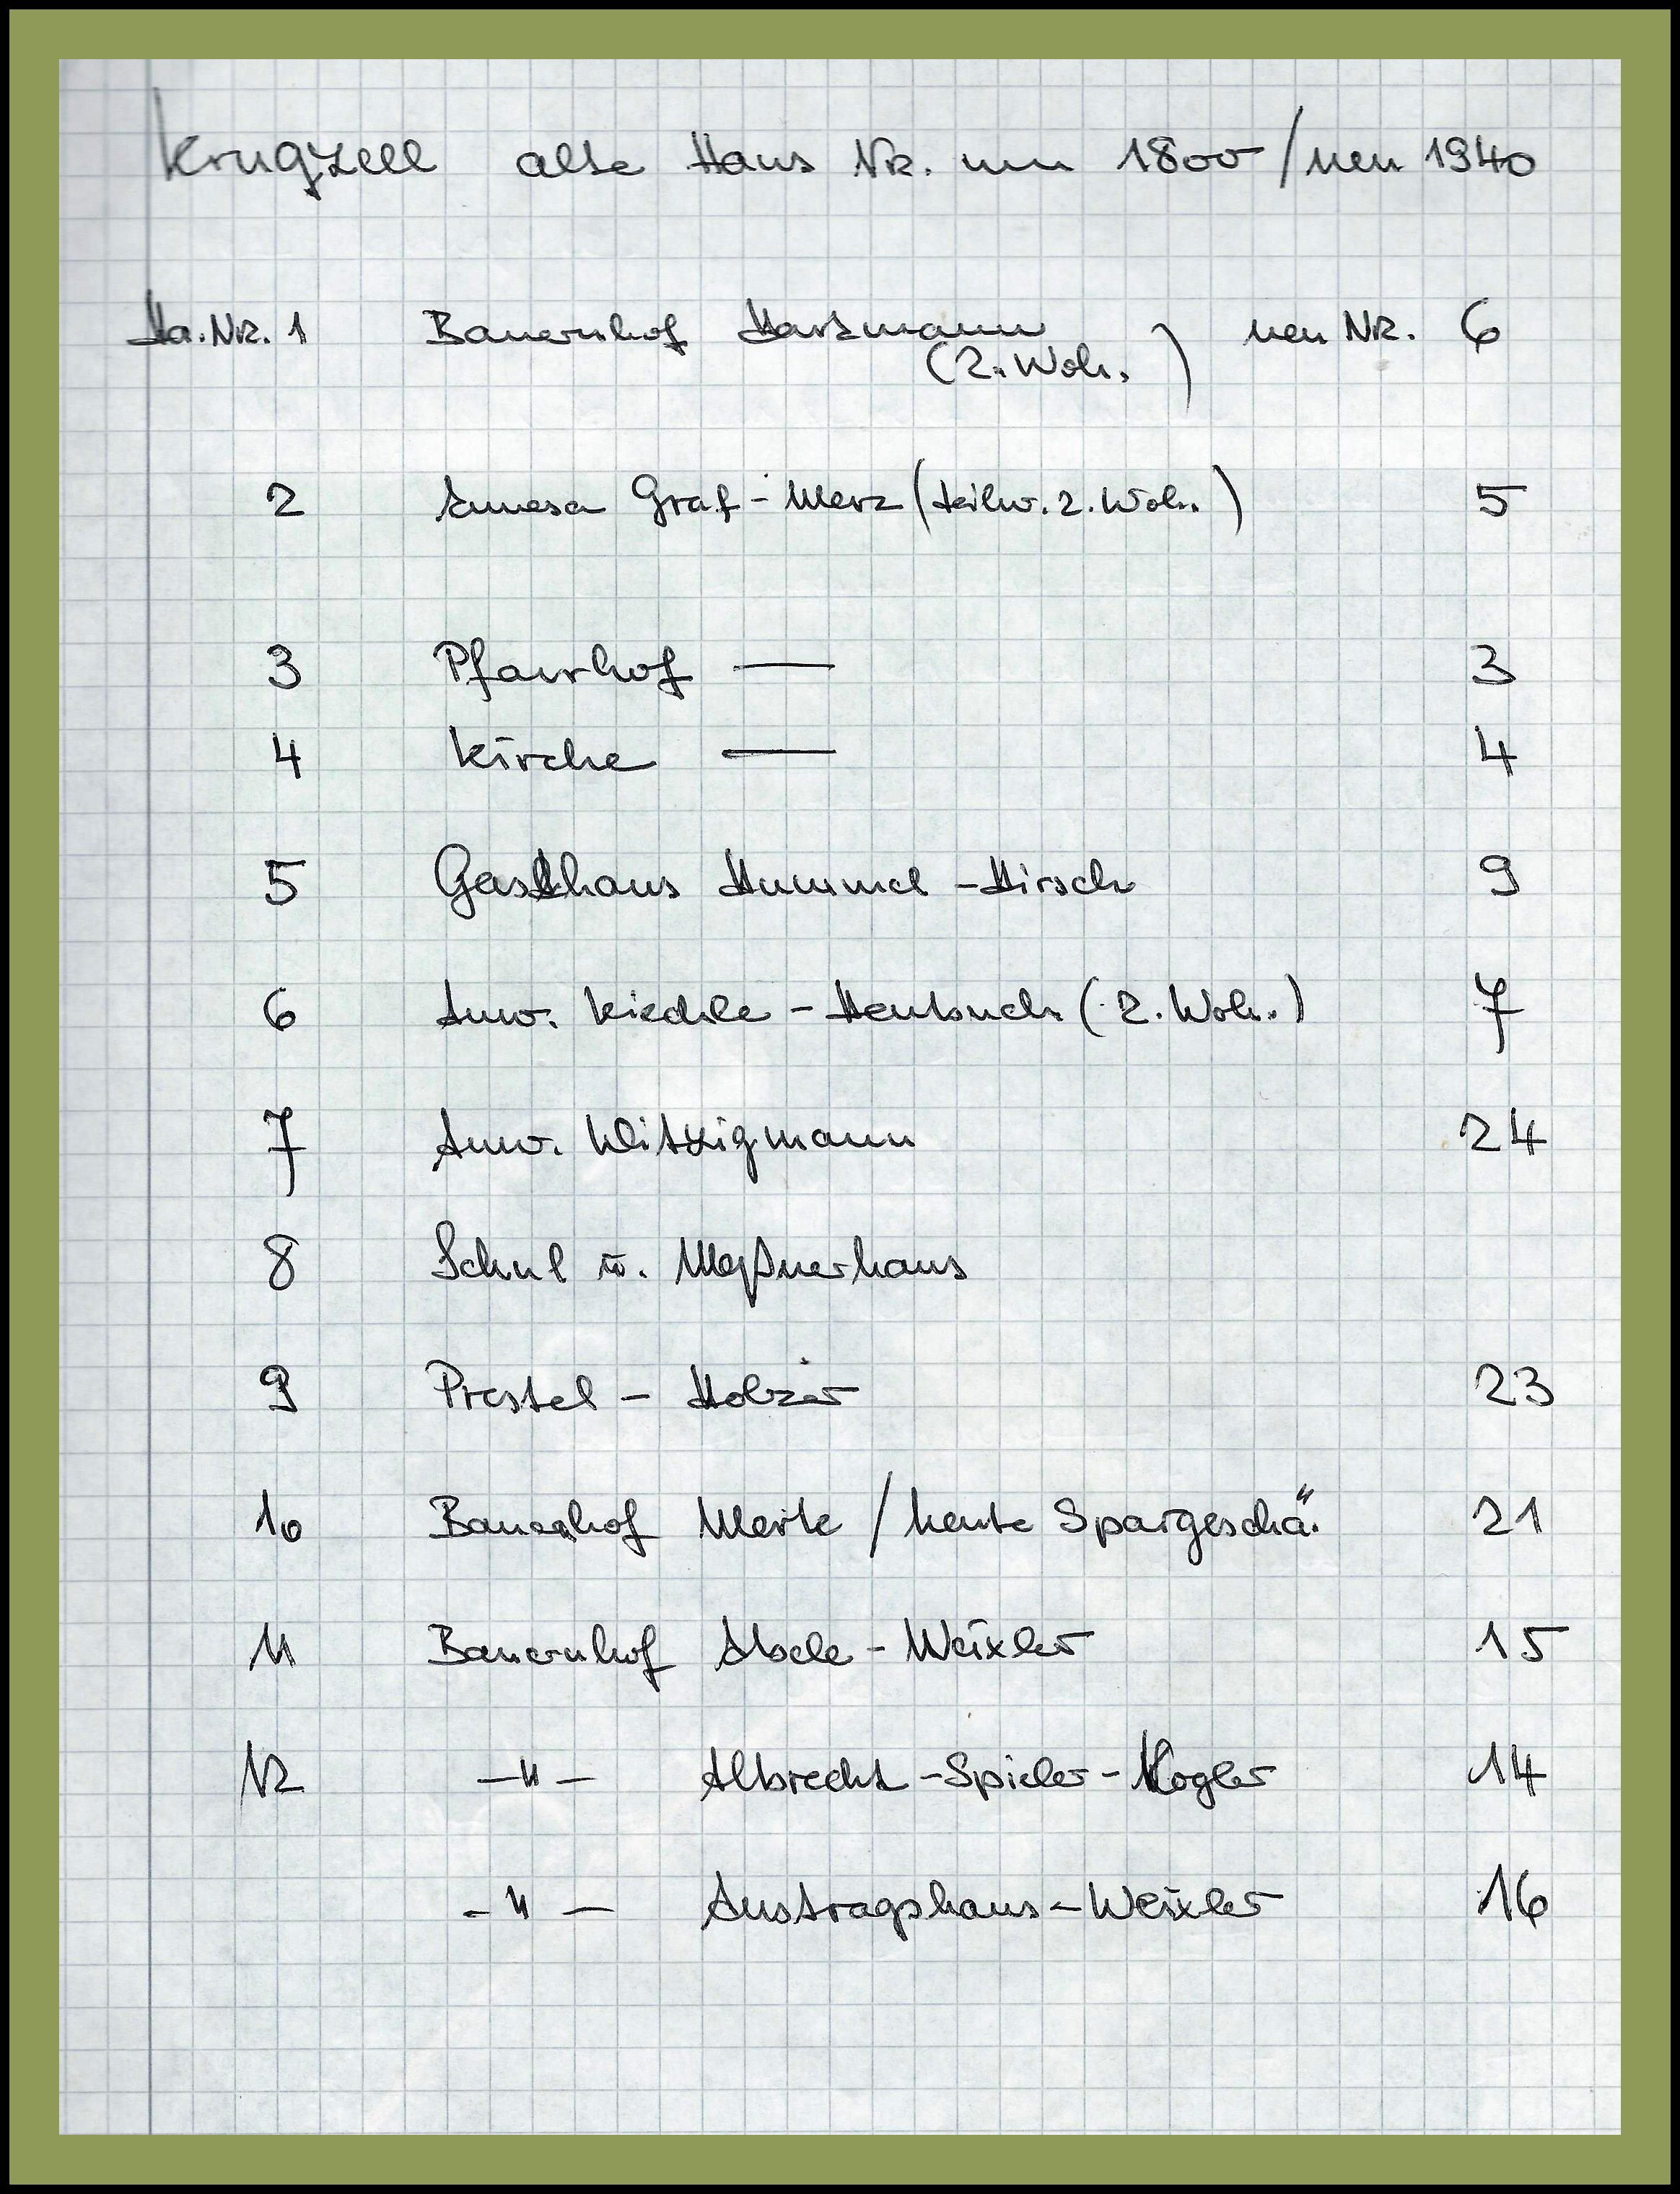 Krugzell alte Haus Nr. um 1800 / neu 1940
Ha. Nr. 1 Bauernhof Hartmann neu Nr. 6
(2. Woh.)
2 Graf - Merz (teilw. 2. Woh.) 5
3 Pfarrhof — 3
4 Kirche — 4
5 Gasthaus Hummel - Hirsch 9
6 Anw. Kiechle - (2. Woh.) 7
7 Anw. Witzigmann 24
8 Schul u. Meßnerhaus
9 Prestel - Holzer 23
10 Merk / heute Spargeschä. 21
11 Bauernhof Abele - Weixler 15
12 — " — Albrecht - Spieler - Kogler 14
- " — Austragshaus - Weixler 16